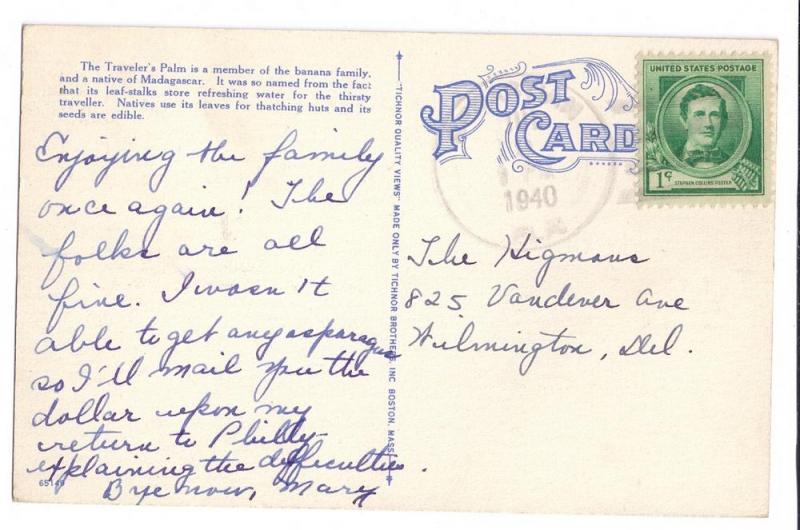 The Traveler's Palm is a member of the banana family,
and a native of Madagascar. It was so named from the fact
that its leaf-stalks store refreshing water for the thirsty
traveller. Natives use its leaves for thatching huts and its
seeds are edible.
Enjoying the family
once again! The
folks are all
fine. I wasn't
able to get any asparagus
so I'll mail you the
dollar upon my
return to Philly
explaining the difficulties.
Bye now, Mary
"TICHNOR QUALITY VIEWS" MADE ONLY BY TICHNOR BROTHERS, INC. BOSTON, MASS.
POST
CARD
1940
UNITED STATES POSTAGE
1¢
STEPHEN COLLINS FOSTER
The Higmans
825 Vandever Ave
Wilmington, Del.